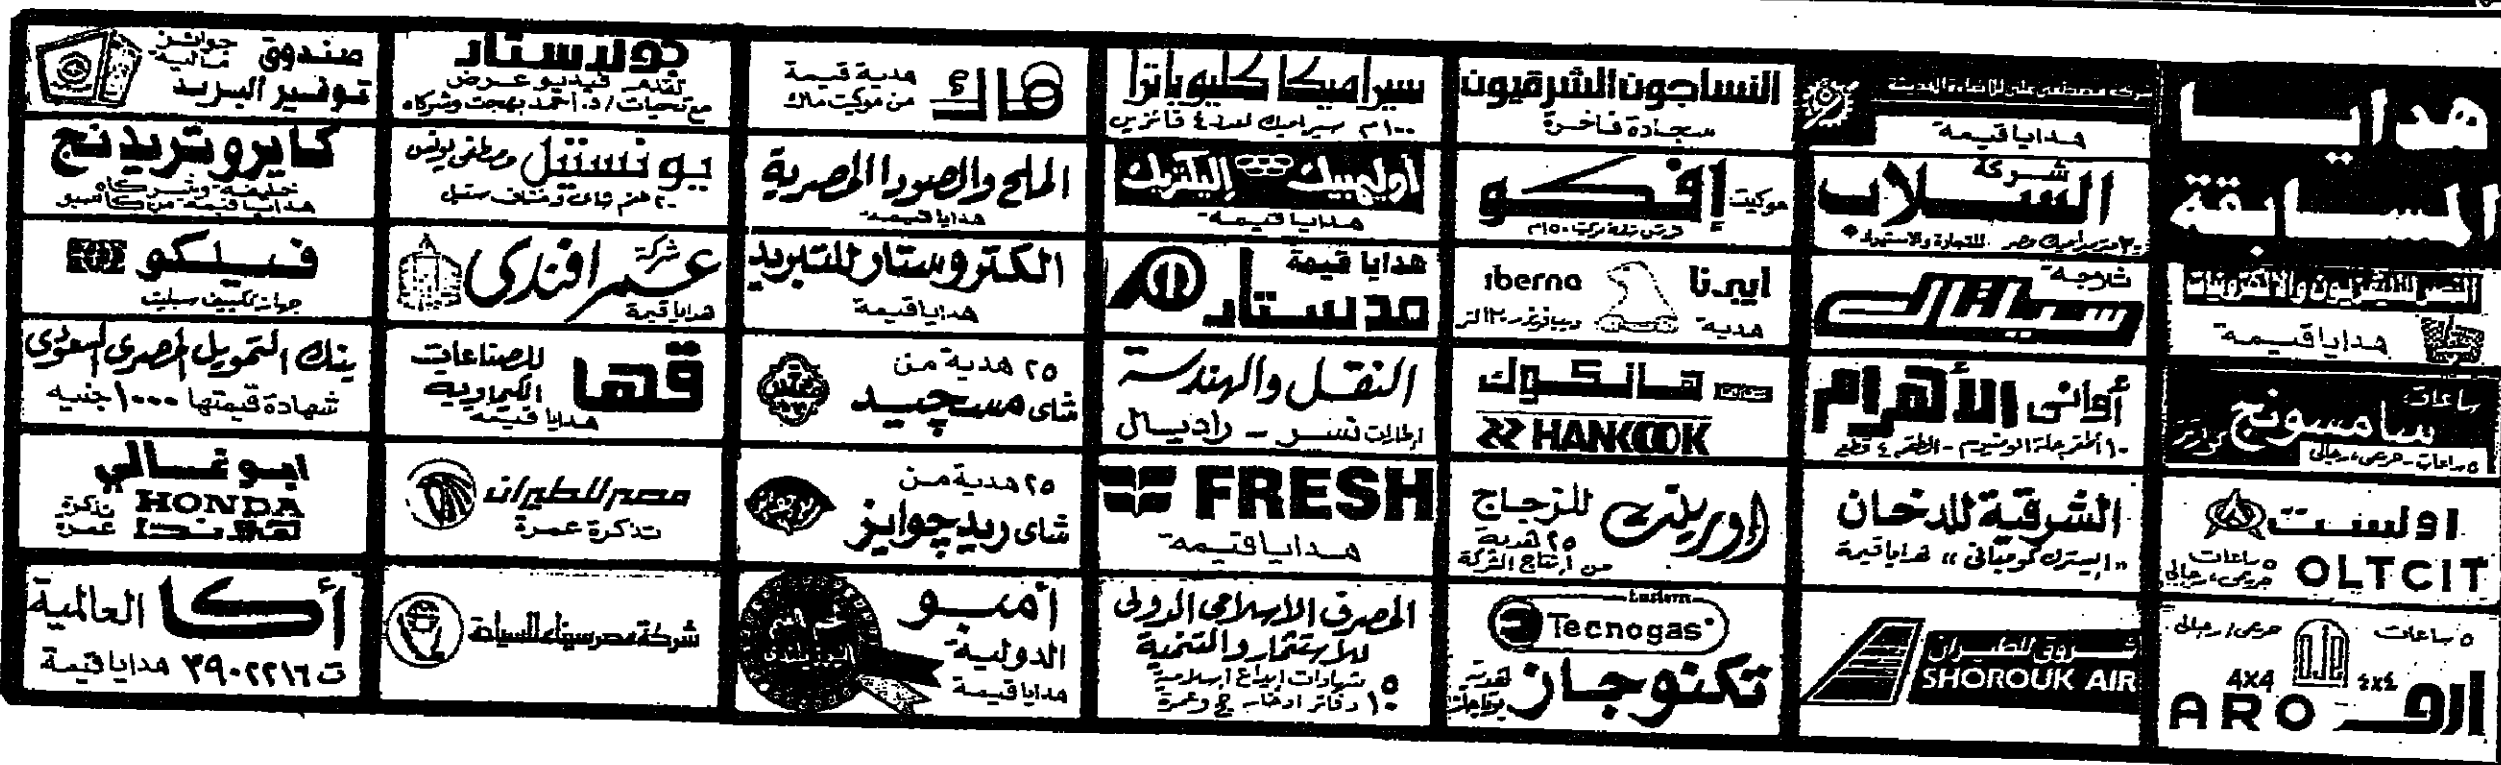 هدايا
المسابقة
هدايا قيمة
ساعات
سامسونج
٥ ساعات - حريمى، رجالى
اولست
OLTCIT
٥ ساعات
حريمى، رجالى
٥ ساعات حريمى، رجالى
4X4
٤x٤
ARO ارو
هدايا قيمة
شركة
السلاب
للتجارة والاستيراد
ثلاجة
سيلتال
أوانى الأهرام
الشرقية للدخان
"ايسترن كومبانى" هدايا قيمة
شروق للطيران
SHOROUK AIR
النساجون الشرقيون
سجادة فاخرة
موكيت إفكو
iberna ايبرنا
هدية
هانكوك
HANKOOK
اورينت للزجاج
٢٥ هدية
من إنتاج الشركة
Tecnogas
تكنوجاز
هدية
سيراميكا كليوباترا
١٠٠م سيراميك لعدد ٤ فائزين
أوليمبيك إليكتريك
هدايا قيمة
هدايا قيمة
مدستار
النقل والهندسة
إطارات نسر - راديال
FRESH
هدايا قيمة
المصرف الإسلامى الدولى
للاستثمار والتنمية
٥ شهادات ايداع إسلامية
١٠ دفاتر ادخار حج وعمرة
هدية قيمة
من موكيت ماك
ماك
الملح والصودا المصرية
هدايا قيمة
الكتروستار للتبريد
هدايا قيمة
٢٥ هدية من
شاى مسجيد
٢٥ هدية من
شاى ريد چوايز
أمبو
الدولية
هدايا قيمة
جولدستار
تقدم فيديو عرض
مع تحيات / د. أحمد بهجت وشركاه
يونستيل مصطفى يونس
شركة
عمر افندى
هدايا قيمة
قها
للصناعات
الكيماوية
هدايا قيمة
مصر للطيران
تذكرة عمرة
شركة مصر سيناء للسياحة
صندوق
توفير البريد
جوائز
مالية
كايرو تريدنج
خليفة وشركاه
فيليكو
جهاز تكييف سبليت
بنك التمويل المصرى السعودى
شهادة قيمتها ١٠٠٠ جنيه
ابو غالى
HONDA
هوندا
تذكرة
عمرة
أكا العالمية
ت ٣٩٠٢٢١٦ هدايا قيمة